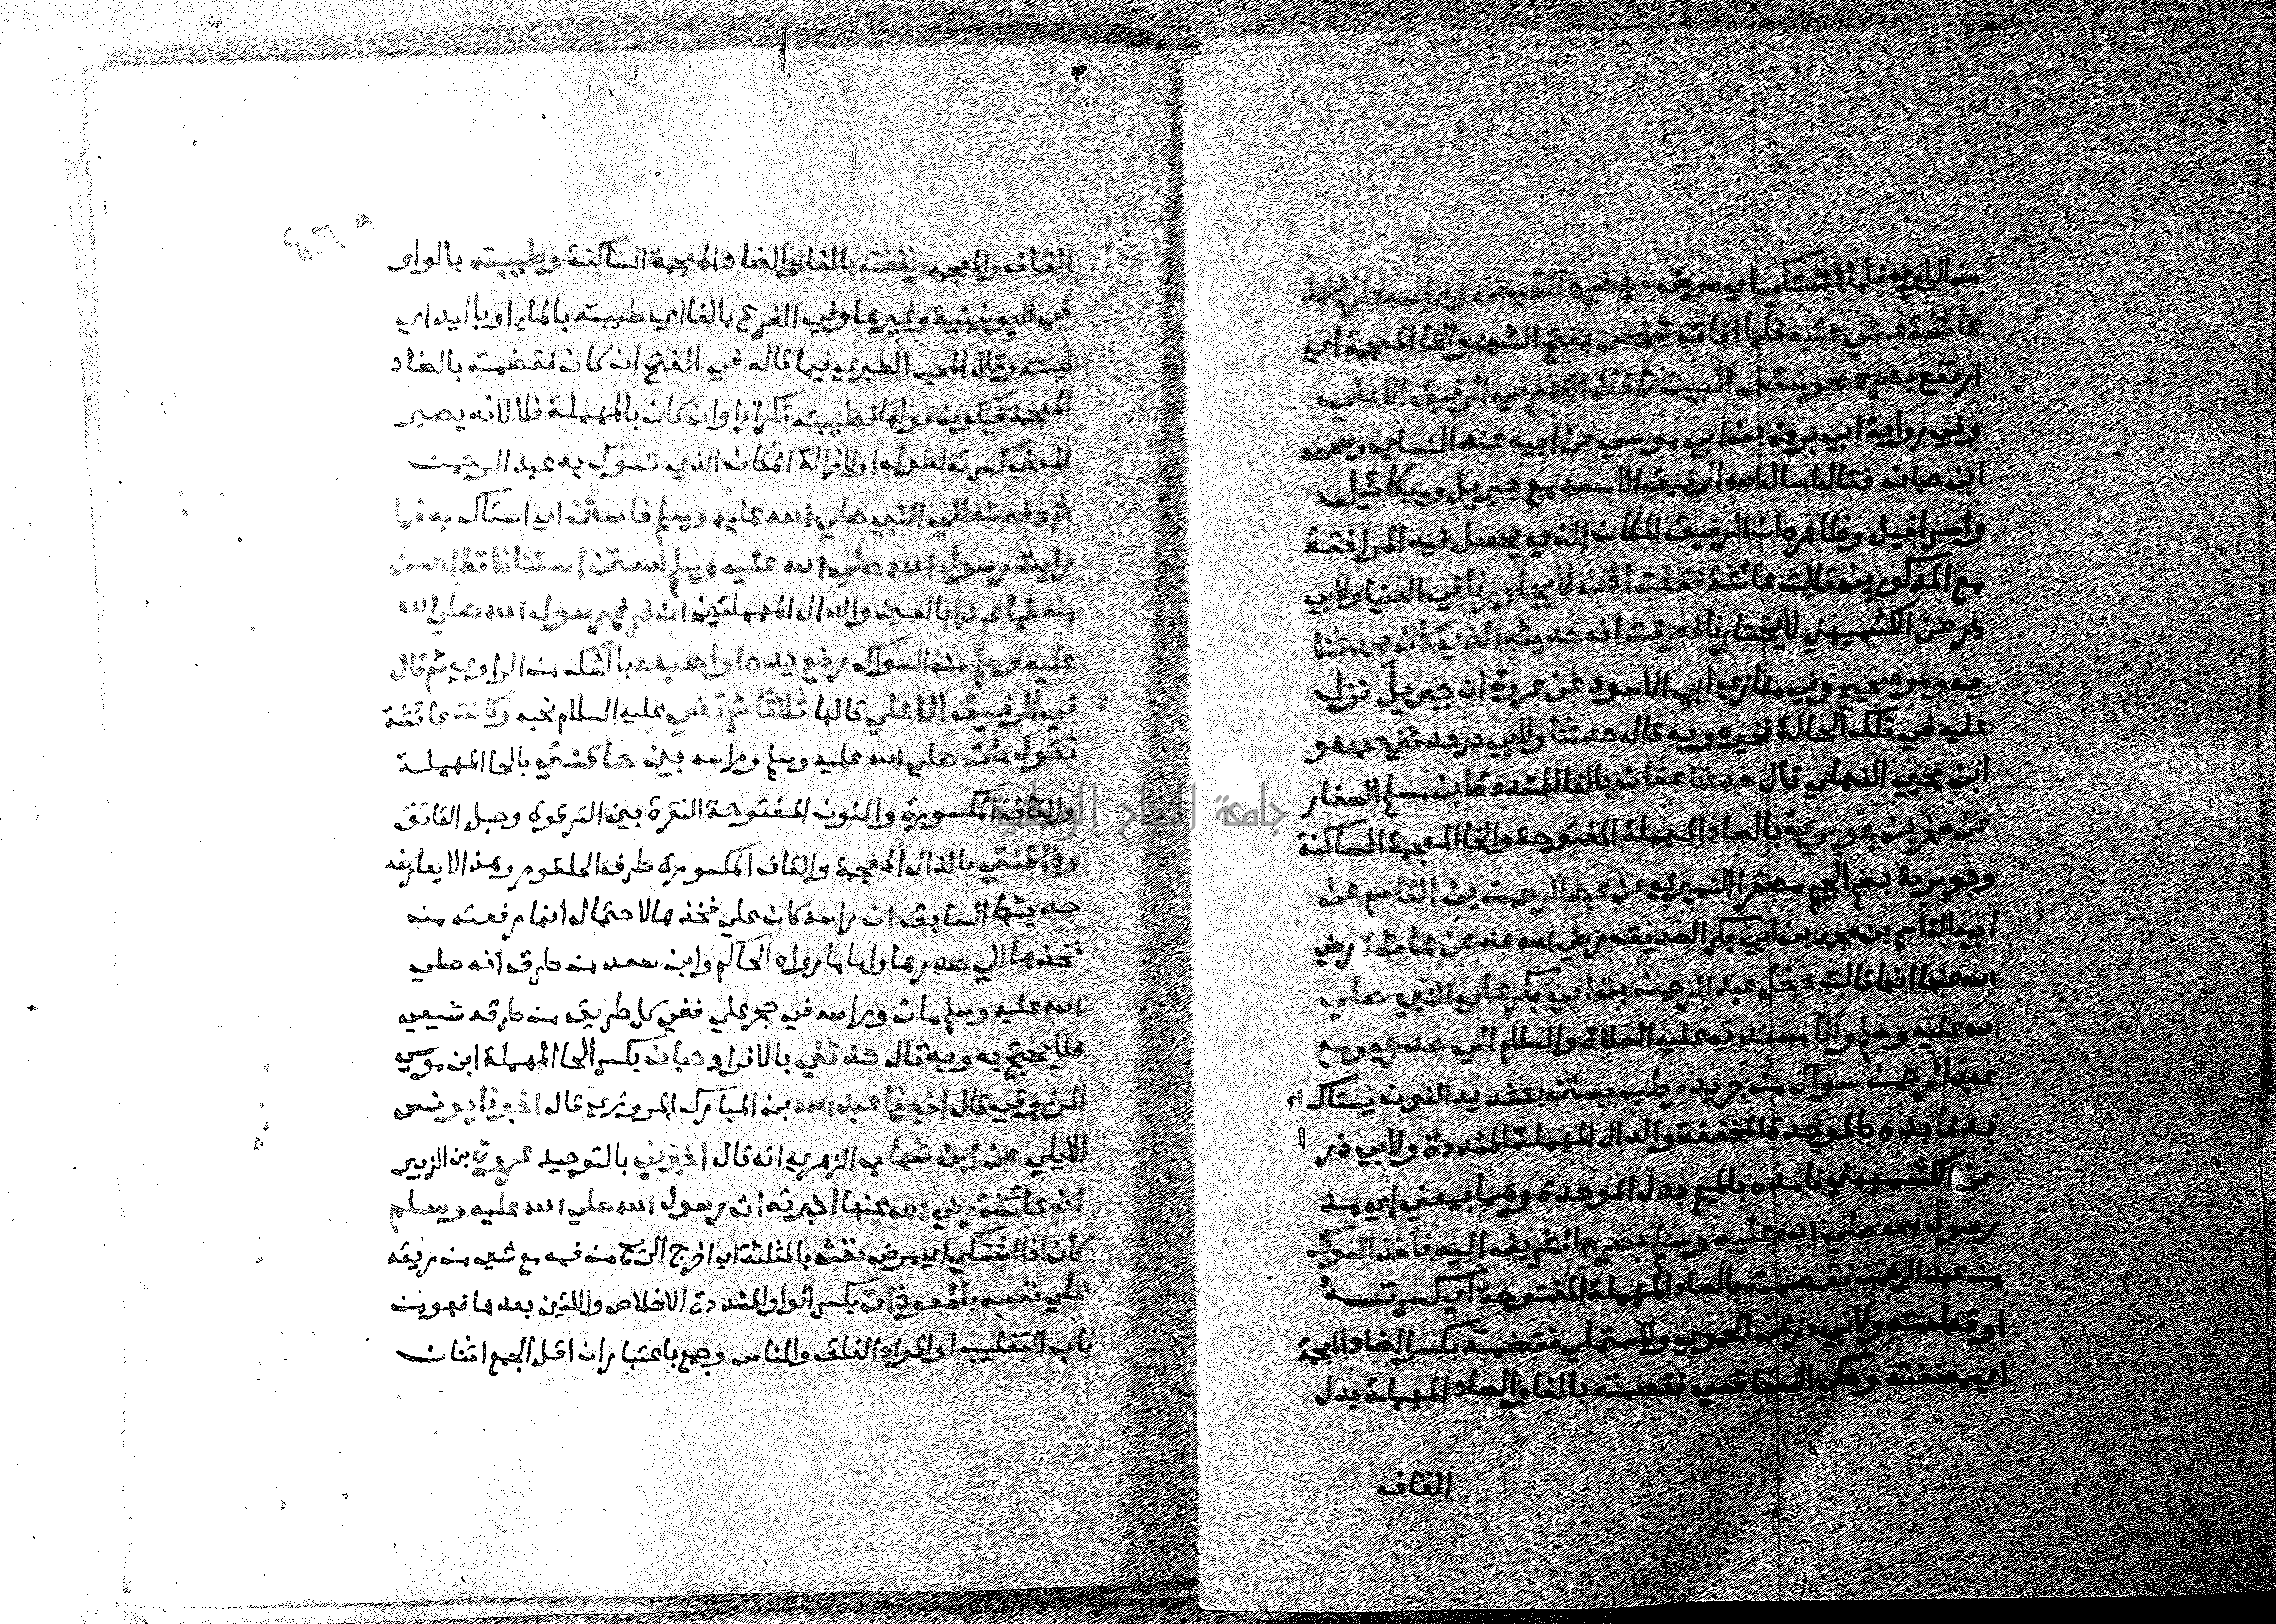 من الراوي فلما اشتكي اي مرض وحضره القبض وراسه علي فخذ
عائشة غشي عليه فلما افاق شخص بفتح الشين والخا المعجمة اي
ارتفع بصره نحو سقف البيت ثم قال اللهم في الرفيق الاعلي
وفي رواية ابي بردة بن ابي موسي عن ابيه عند النساي وصححه
ابن حبان فقال اسال الله الرفيق الاسعد مع جبريل وميكائيل
واسرافيل وظاهره ان الرفيق المكان الذي يحصل فيه المرافقة
مع المذكورين قالت عائشة فقلت اذن لا يجاورنا في الدنيا ولابي
ذر عن الكشميهني لا يختارنا فعرفت انه حديثه الذي كان يحدثنا
به وهو صحيح وفي مغازي ابي الاسود عن عروة ان جبريل نزل
عليه في تلك الحالة فخيره وبه قال حدثنا ولابي ذر حدثني محمد هو
ابن يحيي الذهلي قال حدثنا عفان بالفا المشددة ابن مسلم الصفار
عن صخر بن جويرية بالصاد المهملة المفتوحة والخا المعجمة الساكنة
وجويرية بضم الجيم مصغرا النميري عن عبد الرحمن بن القاسم عن
ابيه القاسم بن محمد بن ابي بكر الصديق رضي الله عنه عن عائشة رضي
الله عنها انها قالت دخل عبد الرحمن بن ابي بكر علي النبي صلي
الله عليه وسلم وانا مسندته عليه الصلاة والسلام الي صدري ومع
عبد الرحمن سواك من جريد رطب يستن بتشديد النون يستاك
به فابده بالموحدة المخففة والدال المهملة المشددة ولابي ذر
عن الكشميهني فامده بالميم بدل الموحدة وهما بمعني اي مد
رسول الله صلي الله عليه وسلم بصره الشريف اليه فاخذ السواك
من عبد الرحمن فقصمته بالصاد المهملة المفتوحة اي كسرته
او قطعته ولابي ذر عن الحموي والمستملي فقضمته بكسر الضاد المعجمة
اي مضغته وحكي السفاقسي ففصمته بالفا والصاد المهملة بدل
القاف
القاف والمعجمة نفضته بالفا والضاد المعجمة الساكنة وطيبته بالواو
في اليونينية وغيرها وفي الفرع بالفا اي طيبته بالما او باليد اي
لينته وقال المحب الطبري فيما قاله في الفتح ان كان فقضمته بالضاد
المعجمة فيكون قولها فطيبته تكرارا وان كان بالمهملة فلا لانه يصير
المعني كسرته لطوله او لازالة المكان الذي تسوك به عبد الرحمن
ثم دفعته الي النبي صلي الله عليه وسلم فاستن اي استاك به فما
رايت رسول الله صلي الله عليه وسلم استن استنانا قط احسن
منه فما عدا بالعين والدال المهملتين ان فرغ رسول الله صلي الله
عليه وسلم من السواك رفع يده او اصبعه بالشك من الراوي ثم قال
في الرفيق الاعلي قالها ثلاثا ثم قضي عليه السلام نحبه وكانت عائشة
تقول مات صلي الله عليه وسلم وراسه بين حاقنتي بالحا المهملة
والقاف المكسورة والنون المفتوحة النقرة بين الترقوة وحبل العاتق
وذاقنتي بالذال المعجمة والقاف المكسورة طرف الحلقوم وهذا لا يعارضه
حديثها السابق ان راسه كان علي فخذها لاحتمال انها رفعته من
فخذها الي صدرها واما ما رواه الحاكم وابن سعد من طرق انه صلي
الله عليه وسلم مات وراسه في حجر علي ففي كل طريق من طرقه شيعي
فلا يحتج به وبه قال حدثني بالافراد حبان بكسر الحا المهملة ابن موسي
المروزي قال اخبرنا عبد الله بن المبارك المروزي قال اخبرنا يونس
الايلي عن ابن شهاب الزهري انه قال اخبرني بالتوحيد عروة بن الزبير
ان عائشة رضي الله عنها اخبرته ان رسول الله صلي الله عليه وسلم
كان اذا اشتكي اي مرض نفث بالمثلثة اي اخرج الريح من فمه مع شي من ريقه
علي نفسه بالمعوذات بكسر الواو المشددة الاخلاص واللتين بعدها فهو من
باب التغليب او المراد الفلق والناس وجمع باعتبار ان اقل الجمع اثنان
جامعة النجاح الوطنية